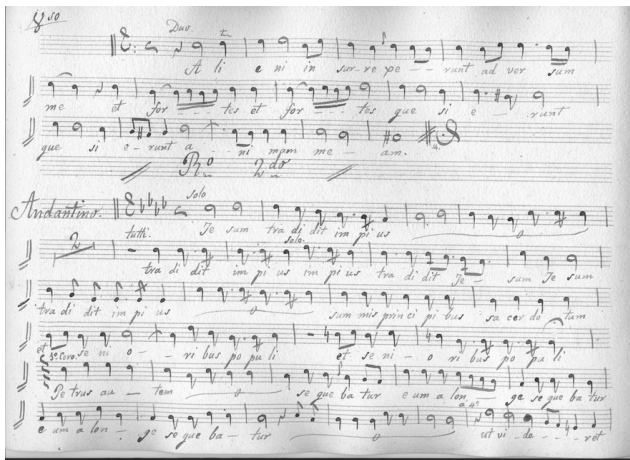 8.so
Duo.
A li e ni in sur-re pe - - runt ad ver sum
me et for - - - tes et for - - - tes que si e - . runt
que si e - runt a - - ni mam me - am.
R.o 2.do
Andantino. tutti. solo Je sum tra di dit im pi us
2 tra di dit im pi us solo. im pi us tra di dit Je - sum Je sum
tra di dit im pi us sum mis prin ci pi bus sa cer do tam
et se ni o - - ri bus po pu li et se ni - o ri bus po pu li
Pe trus au - tem se que ba tur e um a lon - ge se que ba tur
e um a lon - ge se que ba - tur a 4.o ut vi de - - - ret